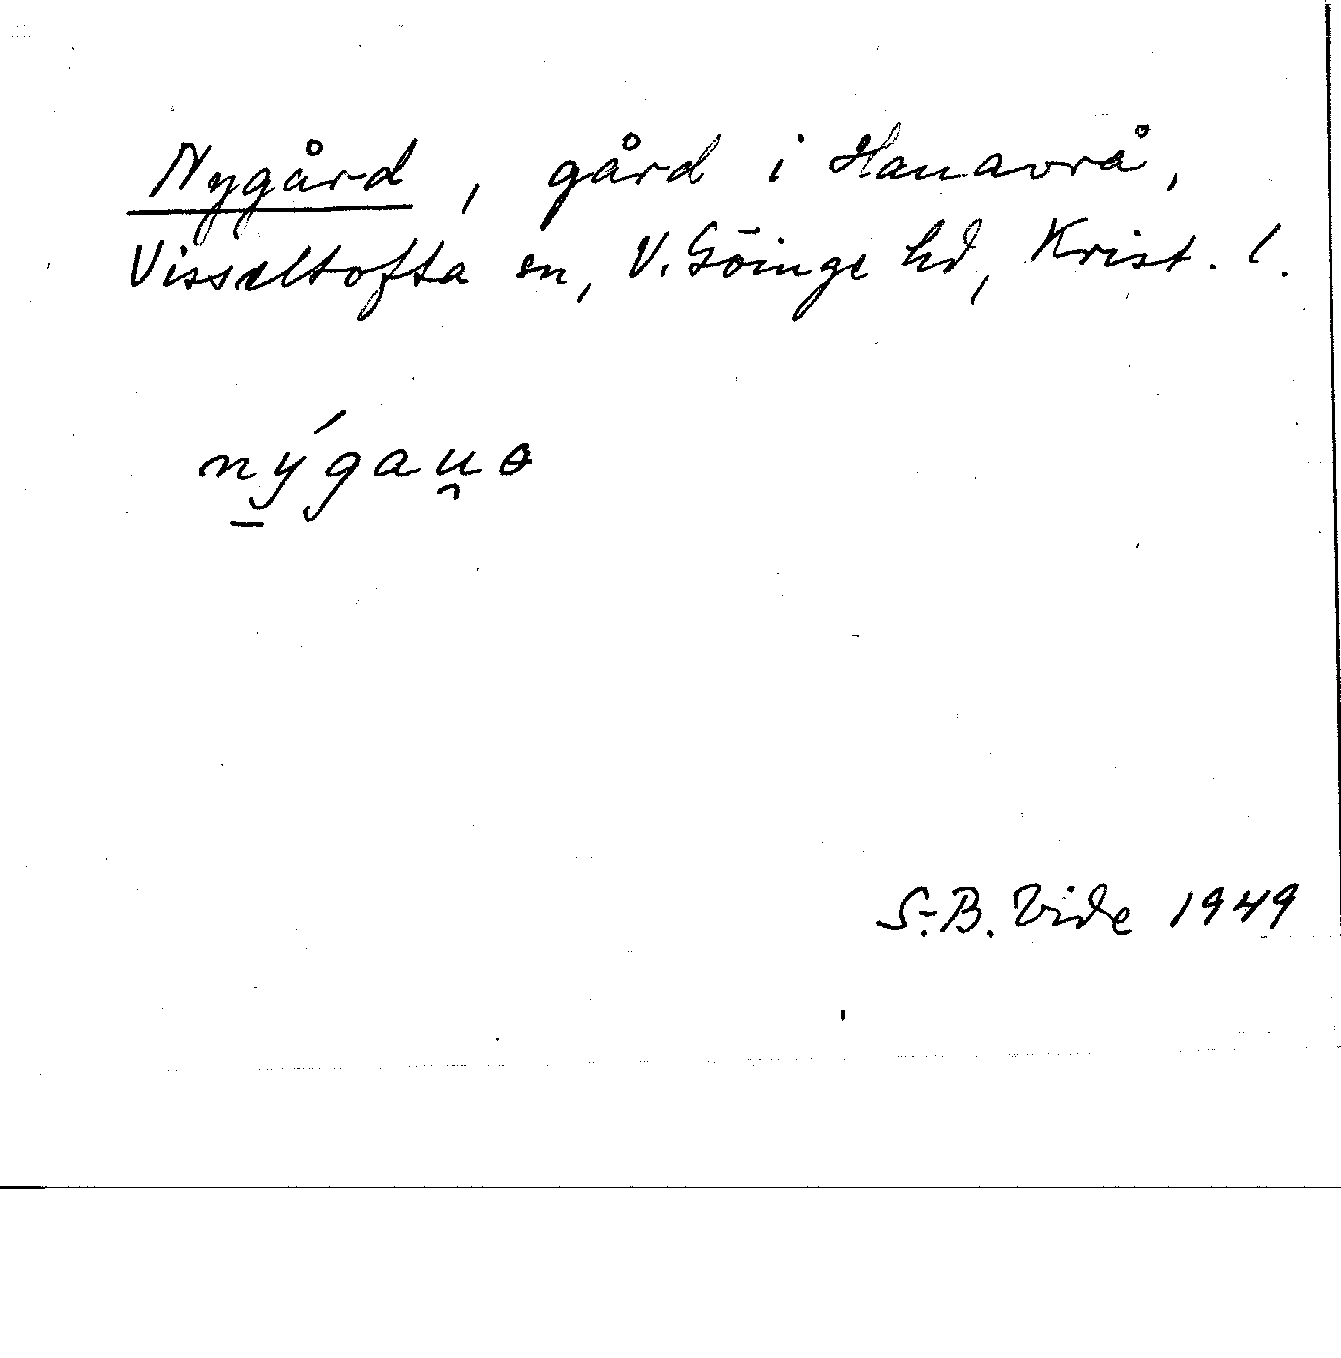 Nygård, gård i Hanavrå,
Visseltofta sn, V. Göinge hd, Krist. l.
nýgau̯ɵ
S.-B. Vide 1949